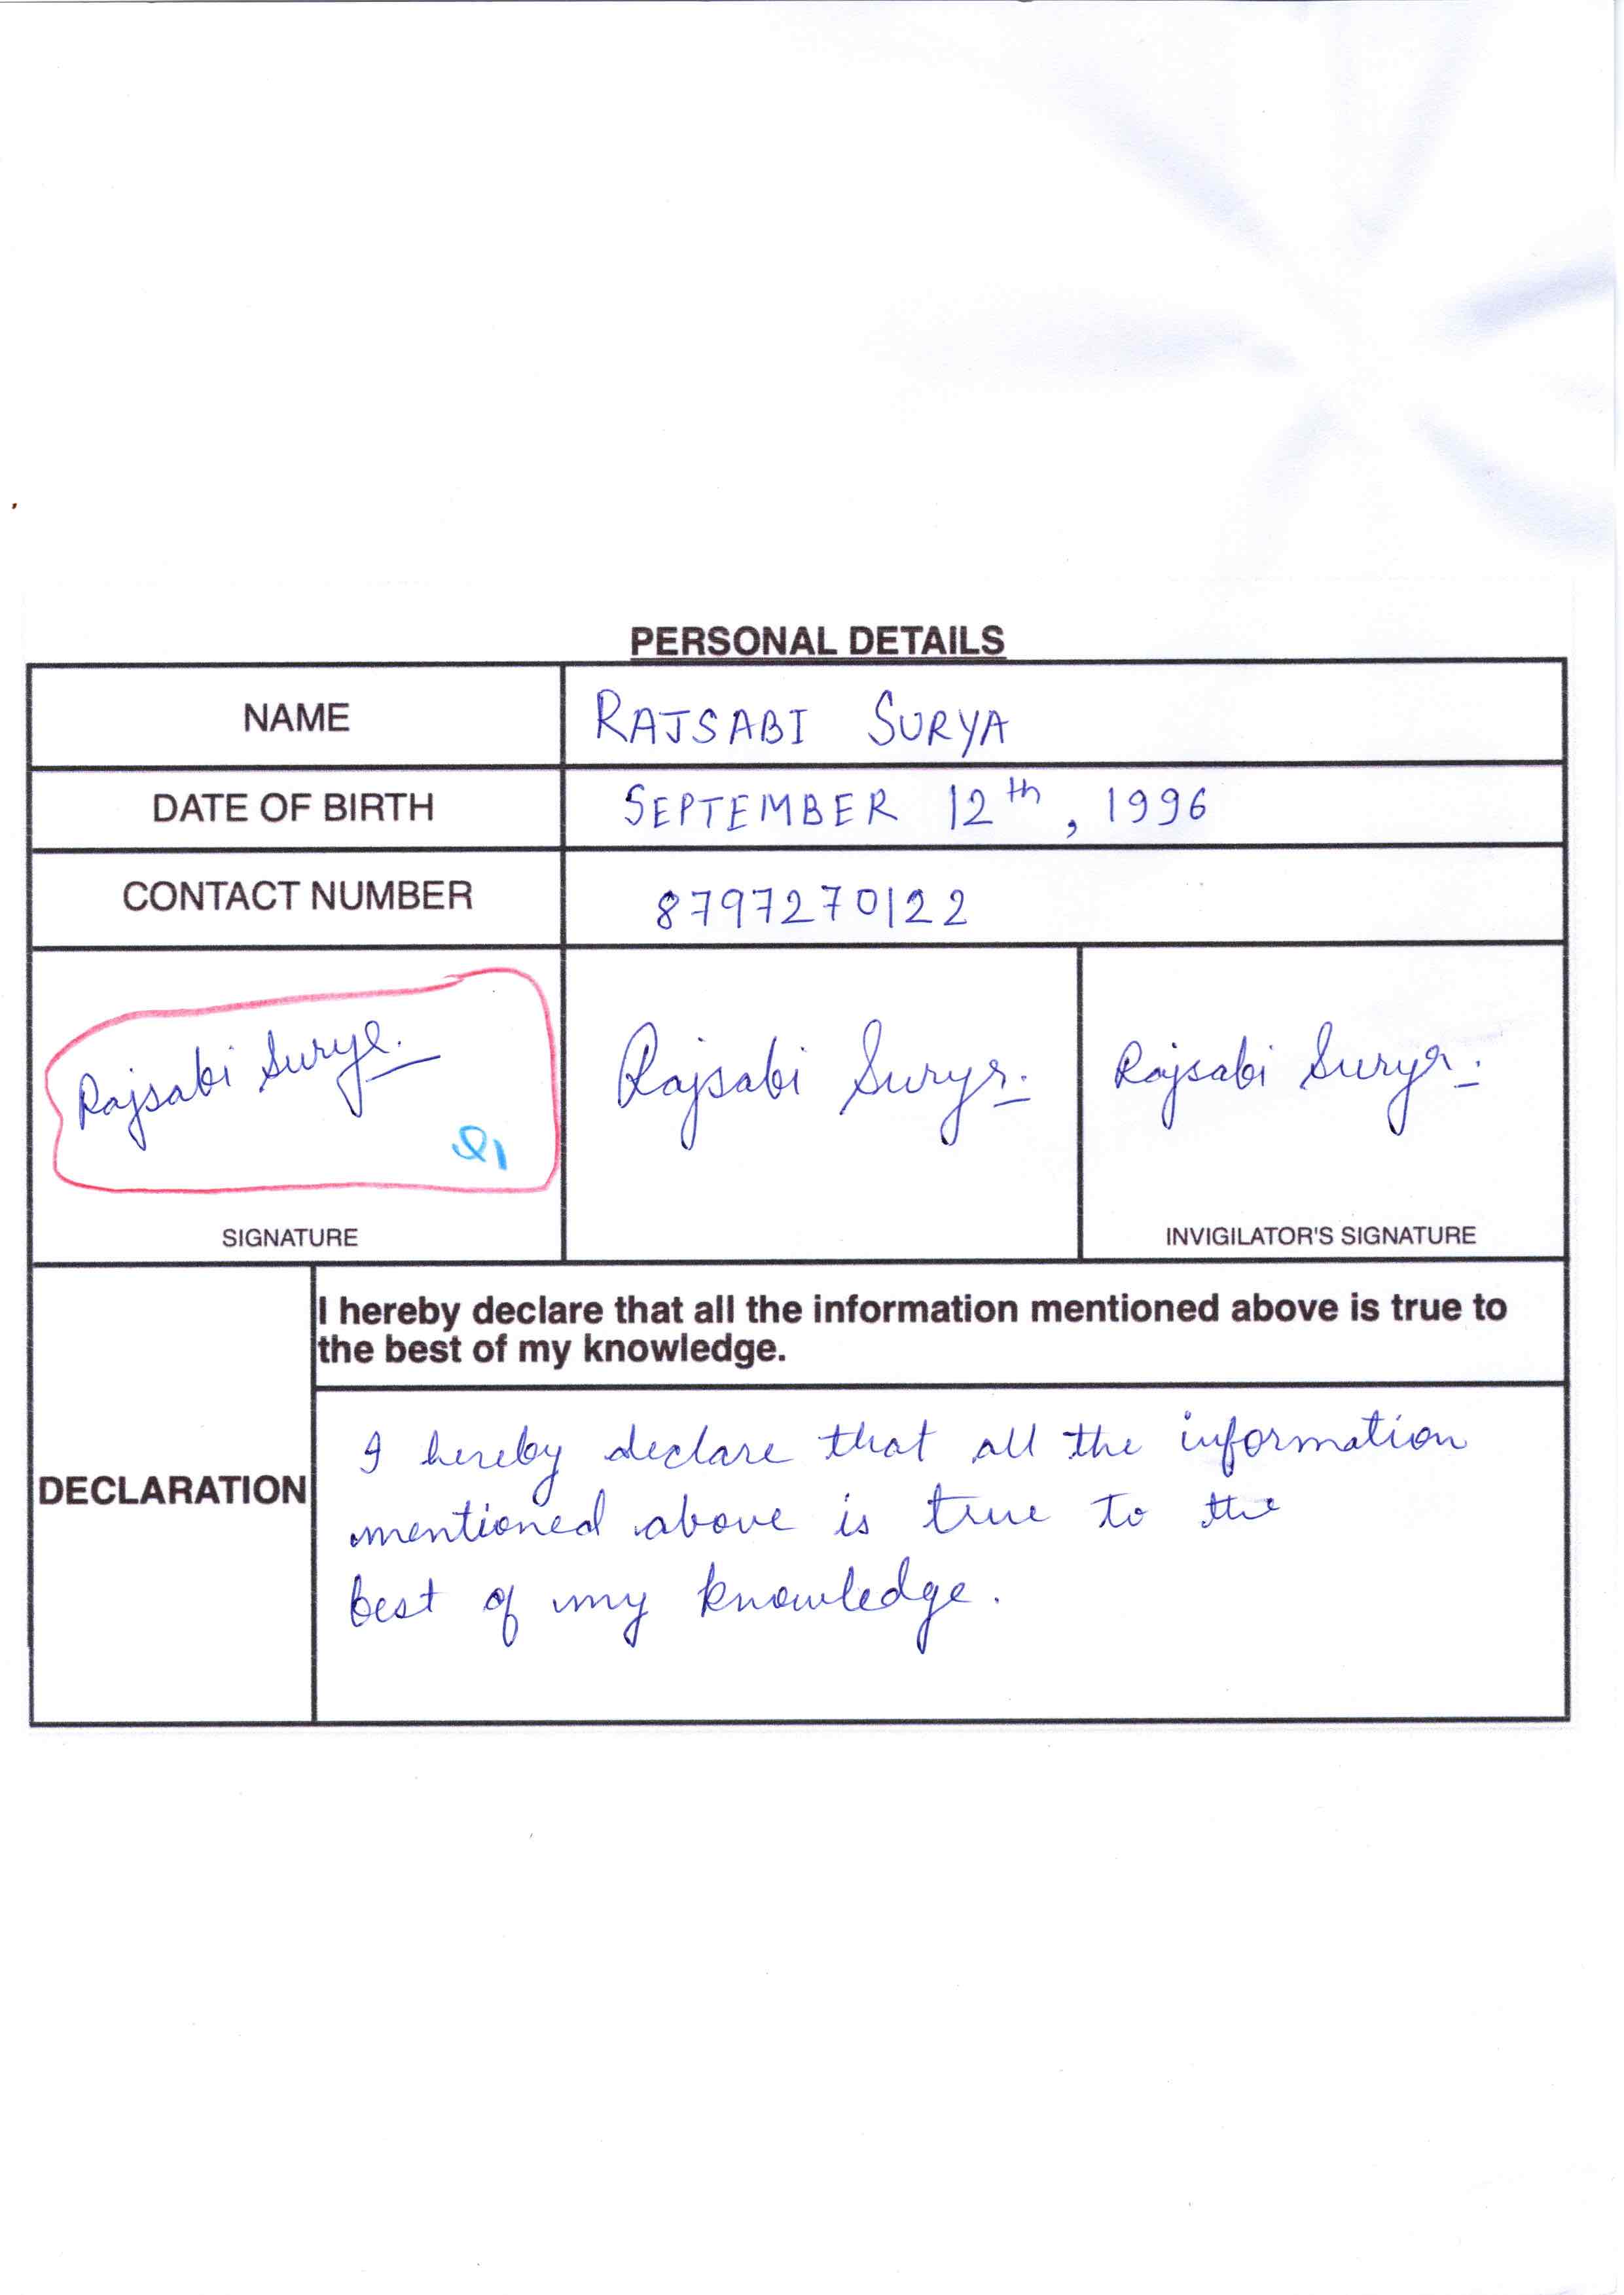 PERSONAL DETAILS
NAME RAJSABI SURYA
DATE OF BIRTH SEPTEMBER 12th, 1996
CONTACT NUMBER 8797270122
Rajsabi Surya. Rajsabi Surya. Rajsabi Surya.
SIGNATURE INVIGILATOR'S SIGNATURE
I hereby declare that all the information mentioned above is true to
the best of my knowledge.
I hereby declare that all the information
DECLARATION
mentioned above is true to the
best of my knowledge.